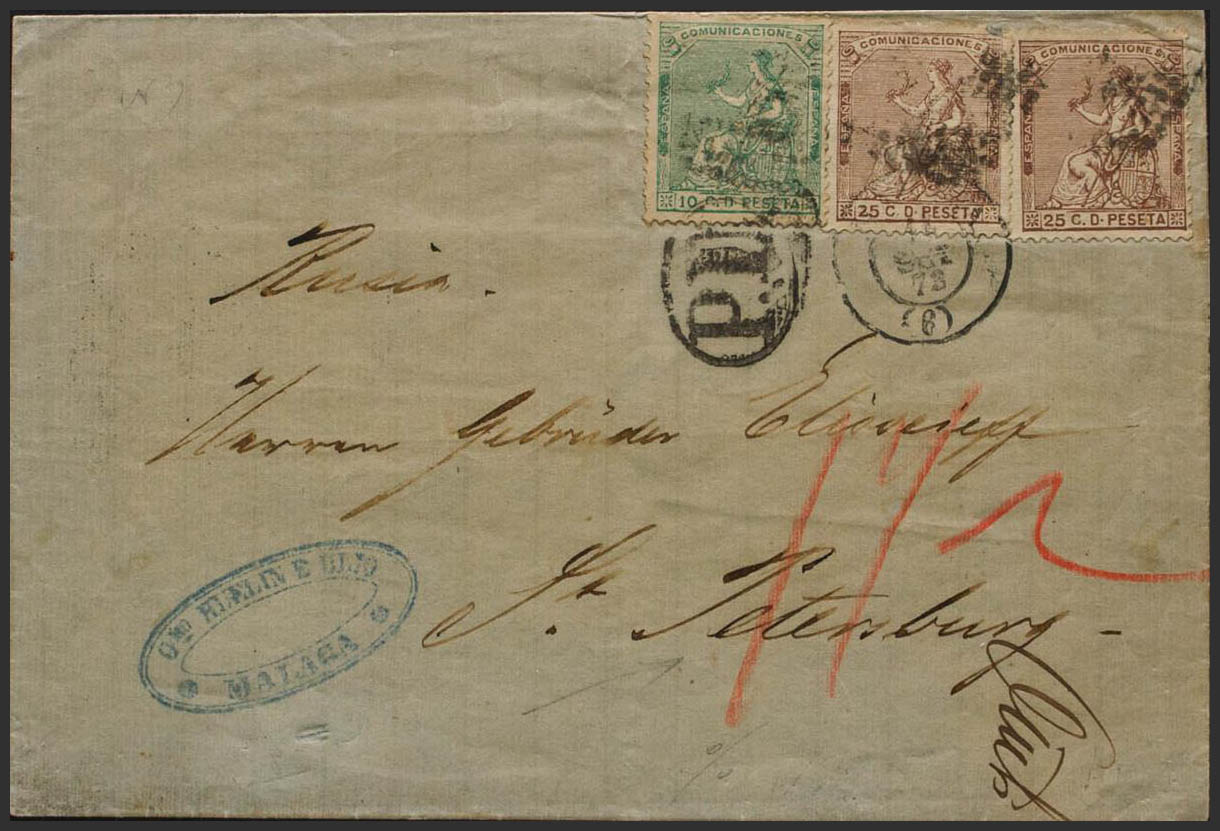 COMUNICACIONES
ESPAÑA
10 C. D. PESETA
COMUNICACIONES
ESPAÑA
25 C. D. PESETA
COMUNICACIONES
ESPAÑA
25 C. D. PESETA
P.D.
73
(6)
Rusia.
Herren Gebrüder Elisseeff
St. Petersburg
MALAGA